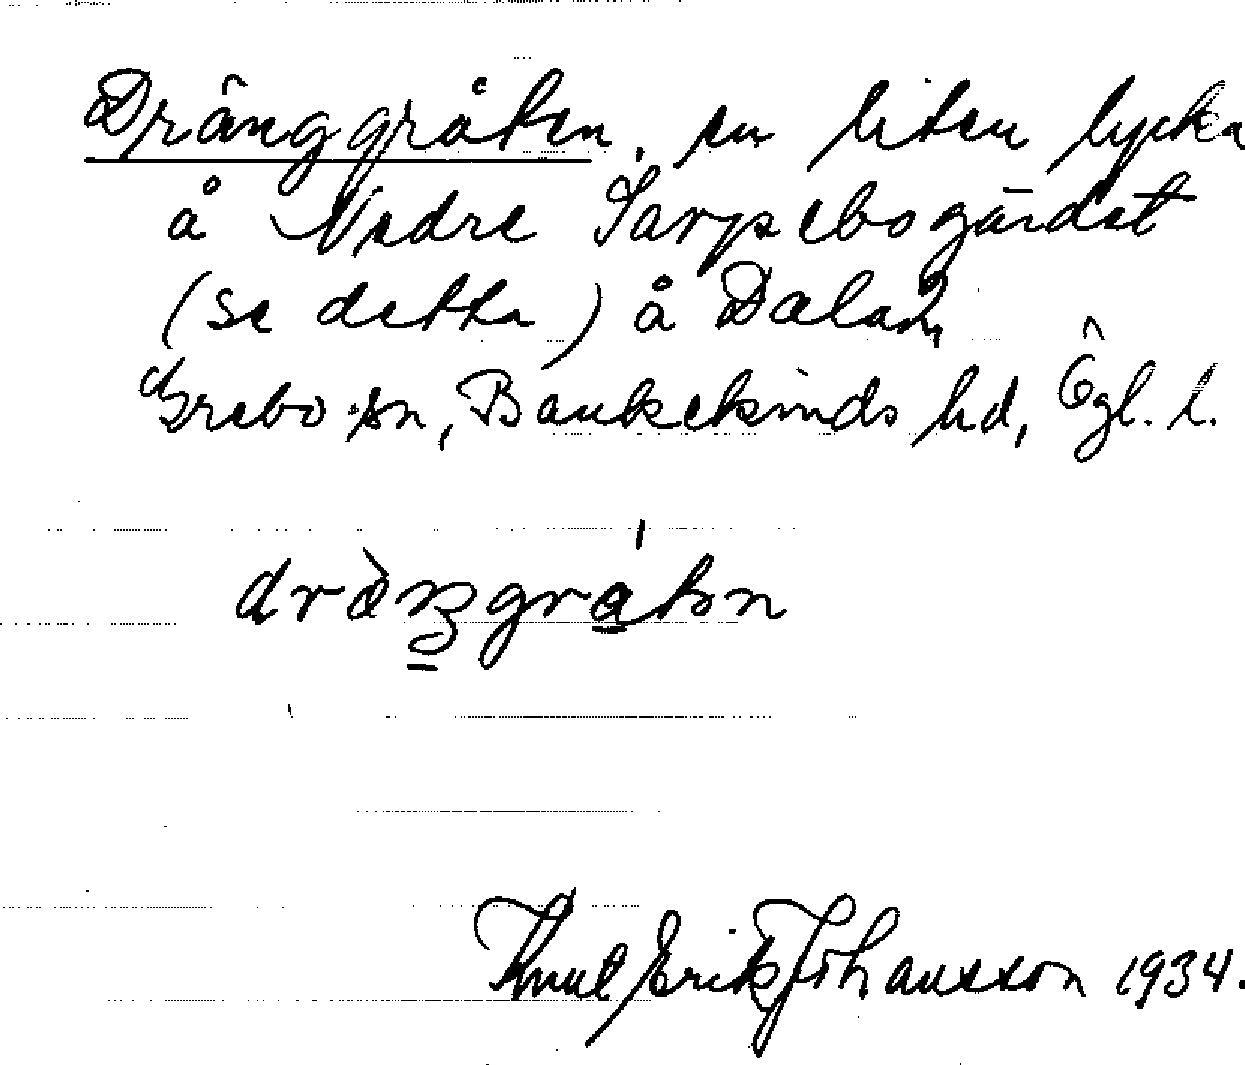 Dränggråten, en liten lycka
å Nedre Sarpsebogärdet
(se detta) å Dalan,
Grebo sn, Bankekinds hd, Ögl. l.
Knut Erik Johansson 1934.